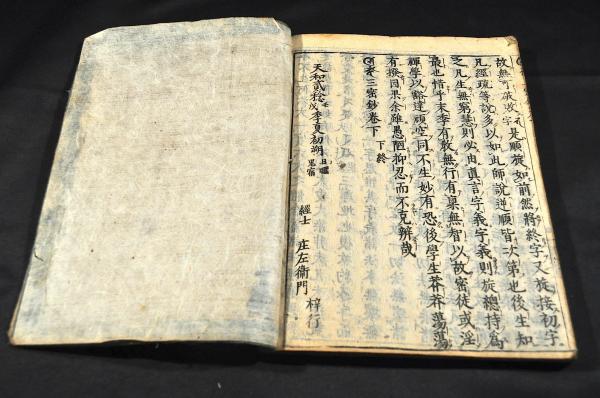 故無可蔽故字 是順旋如前然將終字又旋接初字
凡經疏等說多以如此師說逆順皆次第也後生知
之凡生無窮慧則必由真言字義字義則旋總持爲
最也惜乎末季有教無行有稟無智以故密徒或淫
禪學以豁達頑空同不生妙有恐後學生莽莽蕩蕩
有揆因果余雖愚陋抑忍而不克辨哉
三密鈔卷下 下終
天和貳稔 季夏初朔
經士 庄左衞門 梓行